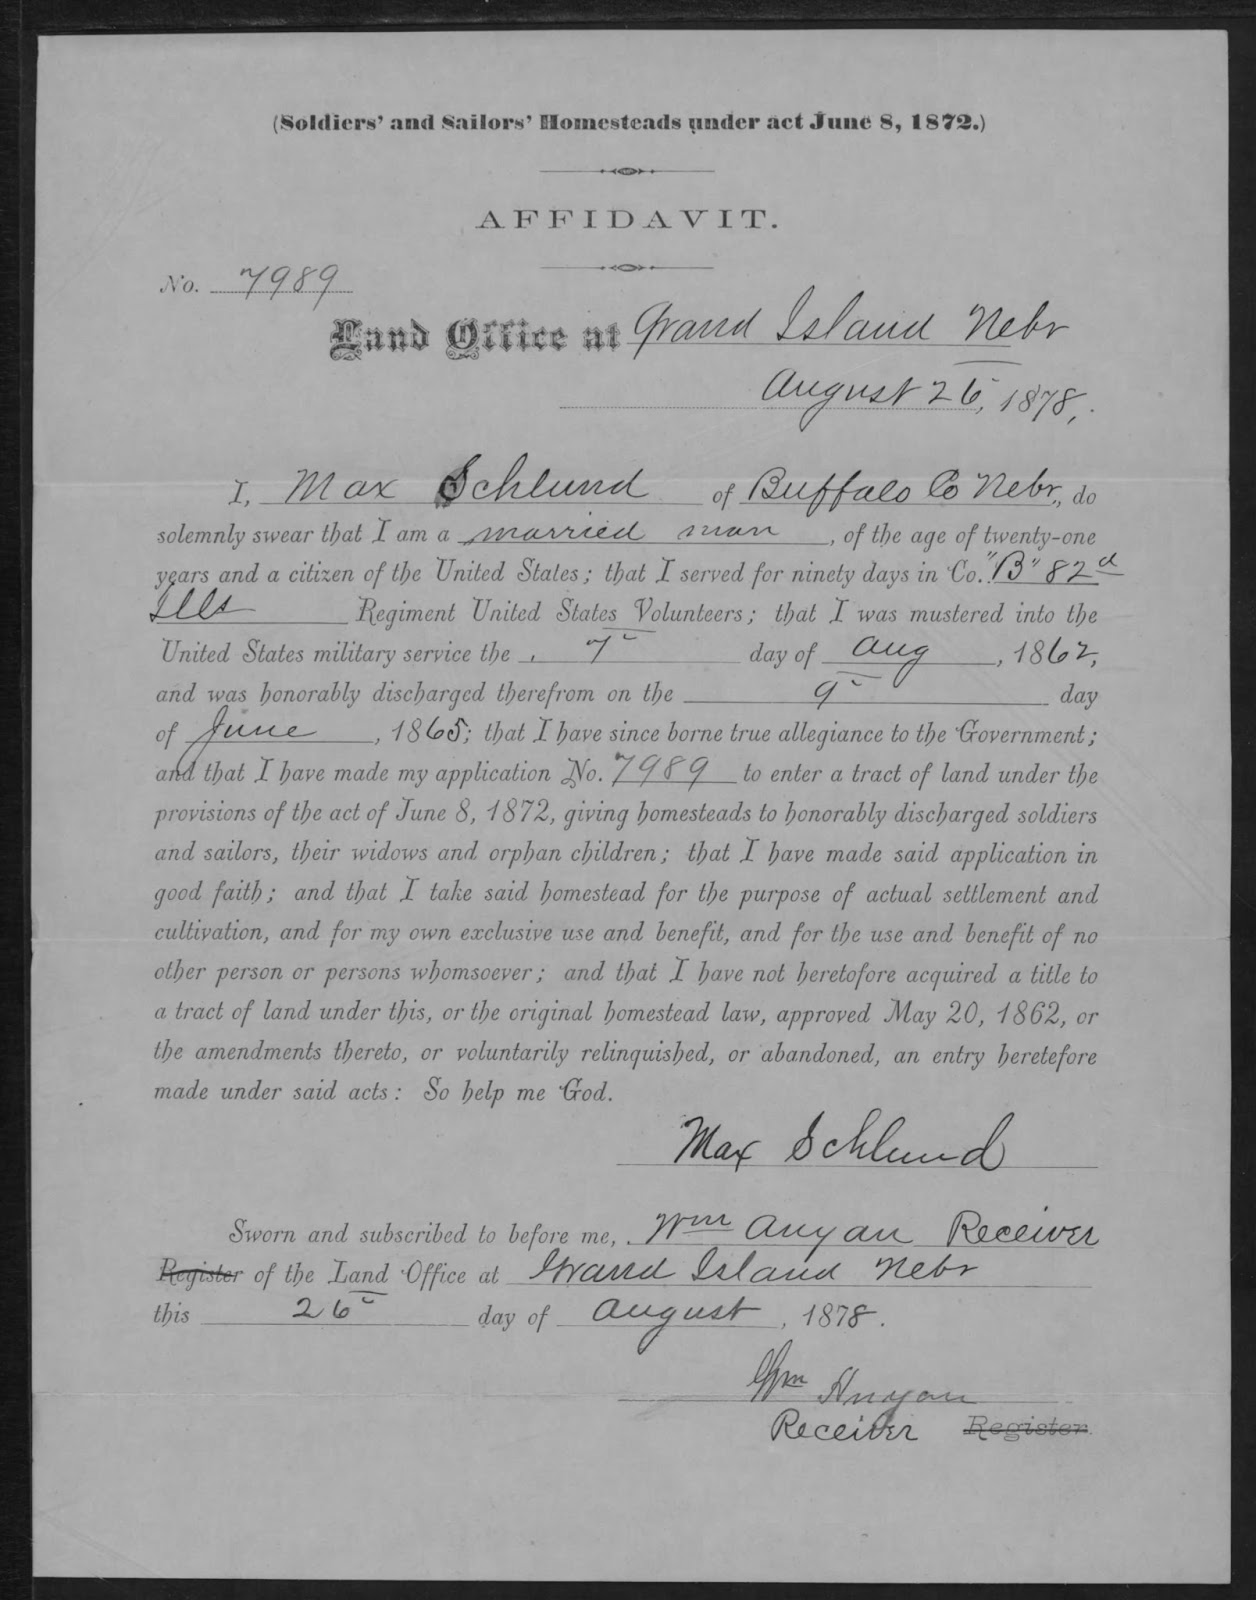 (Soldiers' and Sailors' Homesteads under act June 8, 1872.)
AFFIDAVIT.
No. 7989
Land Office at Grand Island Nebr
August 26, 1878,.
I, Max Schlund of Buffalo Co Nebr, do
solemnly swear that I am a married man, of the age of twenty-one
years and a citizen of the United States; that I served for ninety days in Co. "B" 82d
Ills Regiment United States Volunteers; that I was mustered into the
United States military service the 7" day of Aug, 1862,
and was honorably discharged therefrom on the 9" day
of June, 1865; that I have since borne true allegiance to the Government;
and that I have made my application No. 7989 to enter a tract of land under the
provisions of the act of June 8, 1872, giving homesteads to honorably discharged soldiers
and sailors, their widows and orphan children; that I have made said application in
good faith; and that I take said homestead for the purpose of actual settlement and
cultivation, and for my own exclusive use and benefit, and for the use and benefit of no
other person or persons whomsoever; and that I have not heretofore acquired a title to
a tract of land under this, or the original homestead law, approved May 20, 1862, or
the amendments thereto, or voluntarily relinquished, or abandoned, an entry heretefore
made under said acts: So help me God.
Max Schlund
Sworn and subscribed to before me, Wm Anyan Receiver
Register of the Land Office at Grand Island Nebr
this 26" day of August, 1878.
Wm Anyan
Receiver Register.